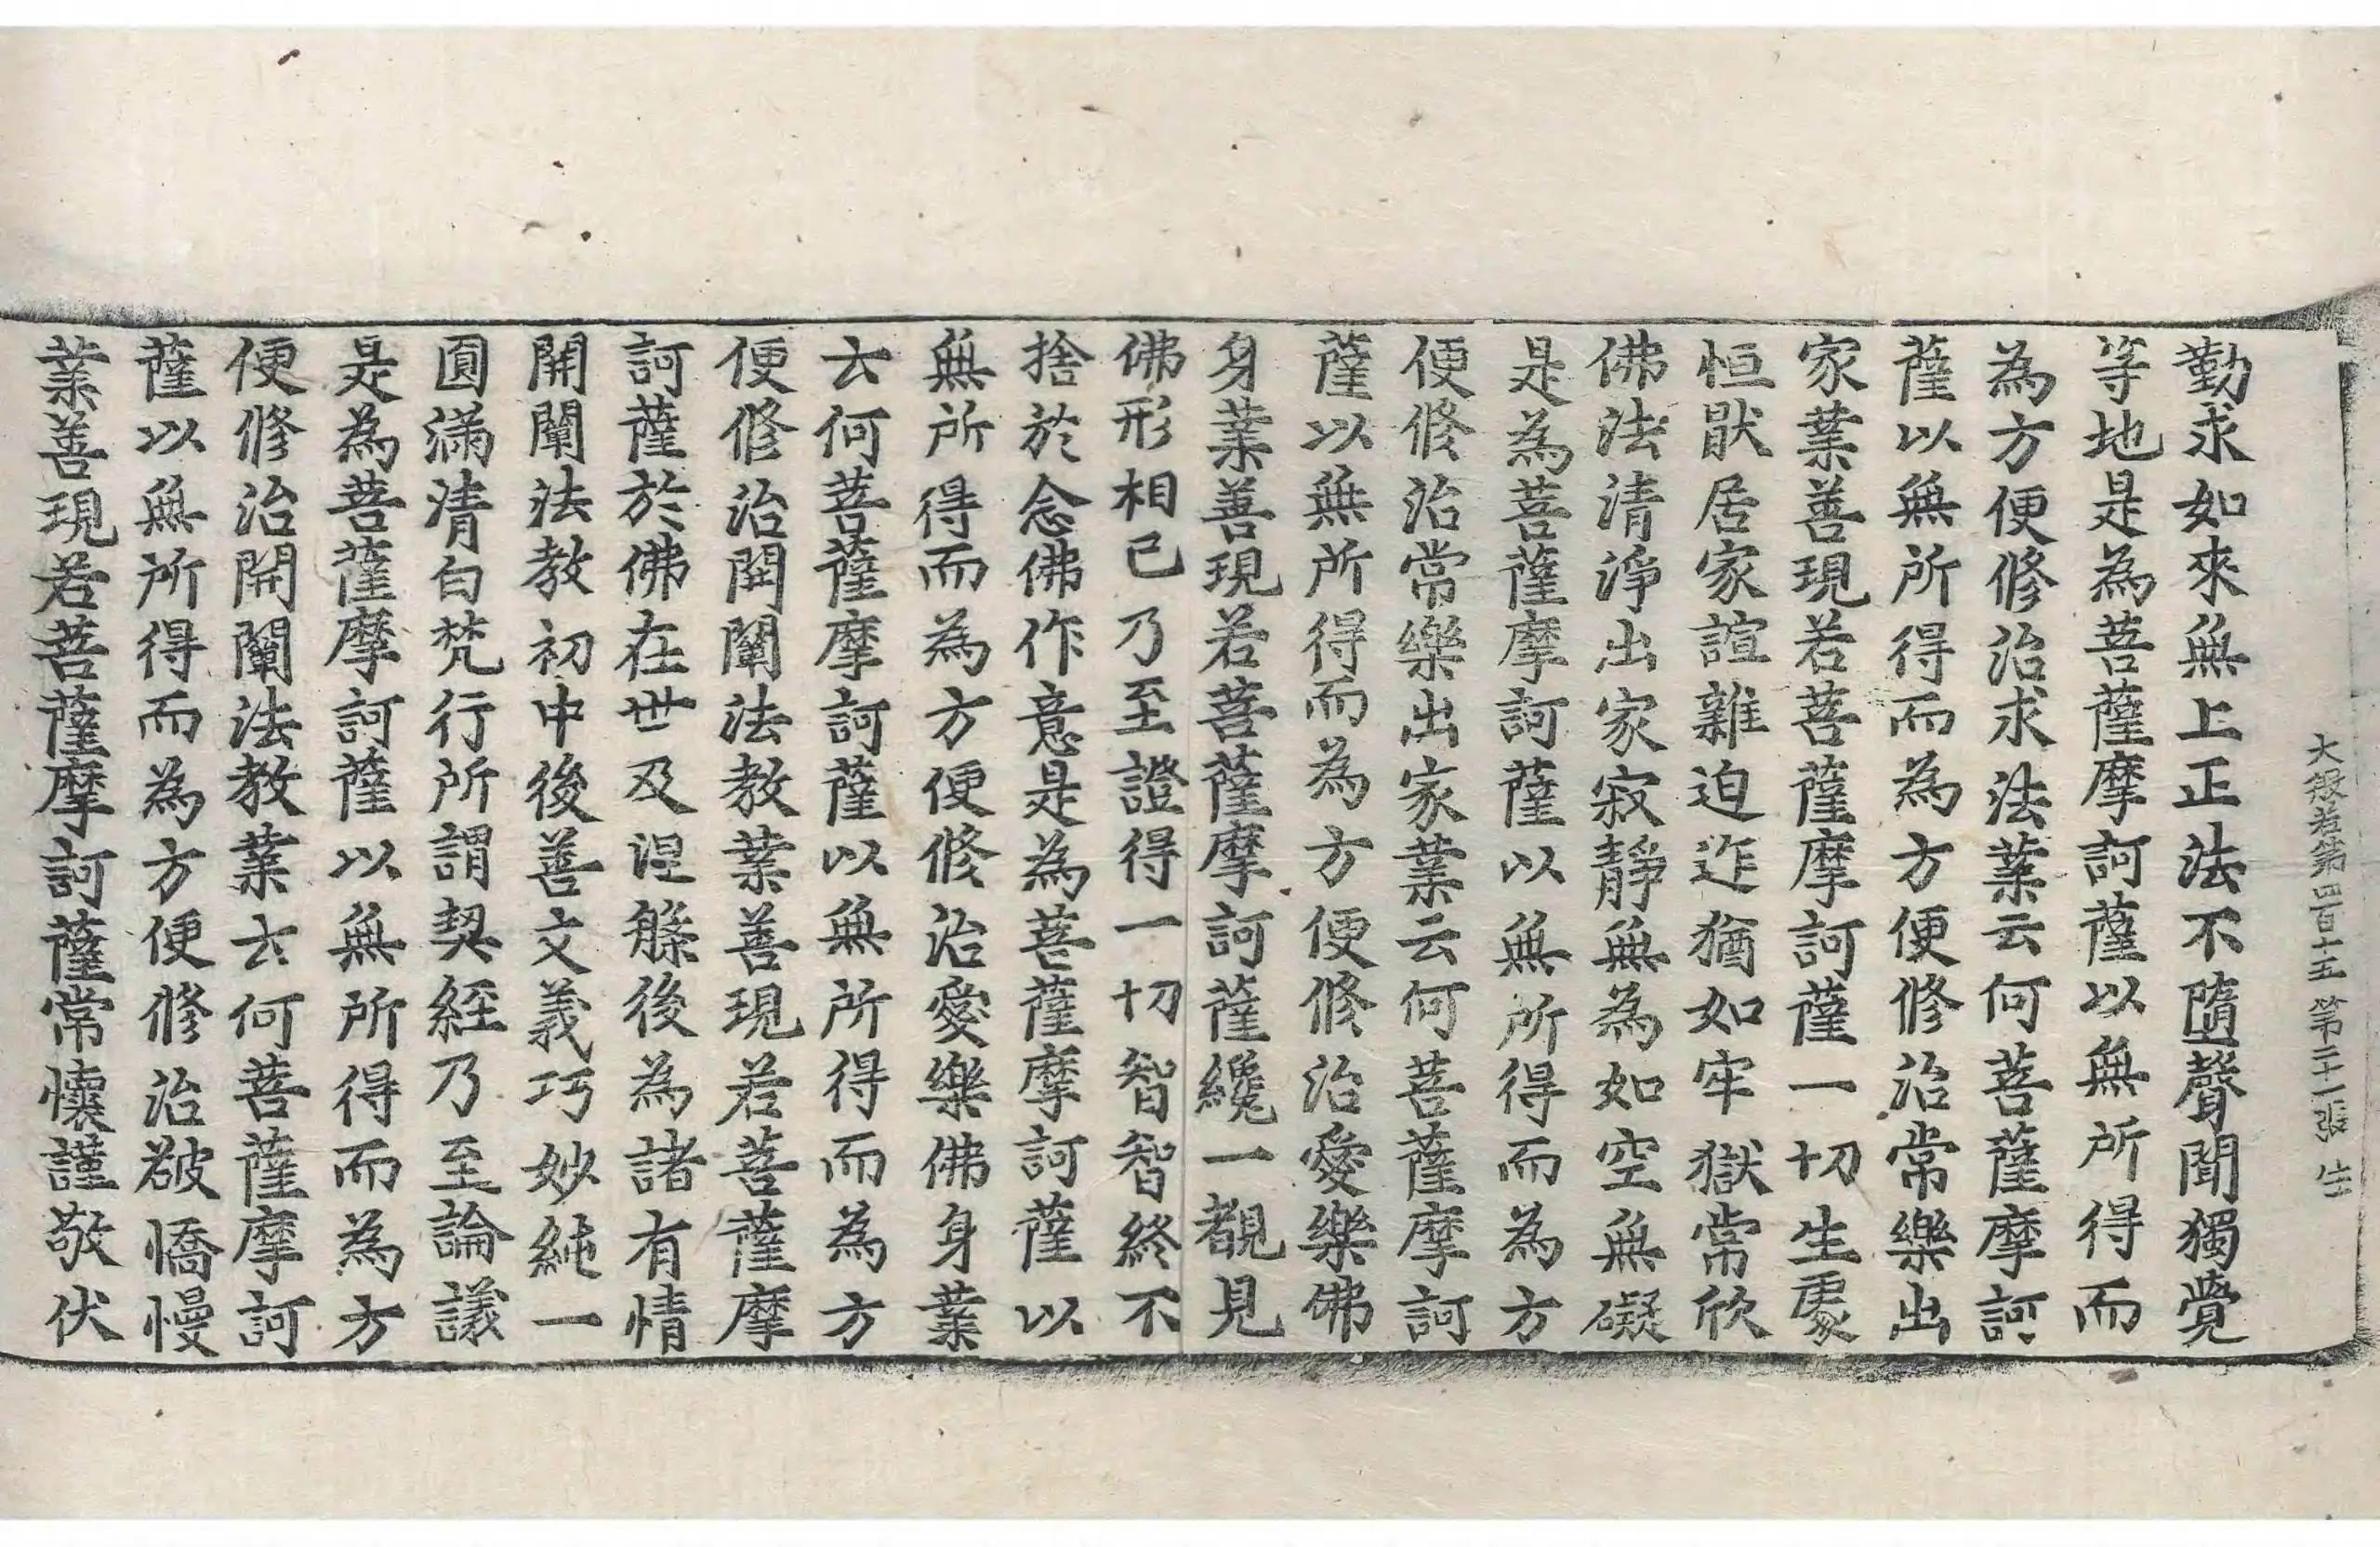 大般若第四百十五 第二十一張 生
勤求如來無上正法不墮聲聞獨覺
等地是為菩薩摩訶薩以無所得而
為方便修治求法業云何菩薩摩訶
薩以無所得而為方便修治常樂出
家業善現若菩薩摩訶薩一切生處
恒猒居家諠雜迫迮猶如牢獄常欣
佛法清淨出家寂靜無為如空無礙
是為菩薩摩訶薩以無所得而為方
便修治常樂出家業云何菩薩摩訶
薩以無所得而為方便修治愛樂佛
身業善現若菩薩摩訶薩纔一覩見
佛形相已乃至證得一切智智終不
捨於念佛作意是為菩薩摩訶薩以
無所得而為方便修治愛樂佛身業
云何菩薩摩訶薩以無所得而為方
便修治開闡法教業善現若菩薩摩
訶薩於佛在世及涅槃後為諸有情
開闡法教初中後善文義巧妙純一
圓滿清白梵行所謂契經乃至論議
是為菩薩摩訶薩以無所得而為方
便修治開闡法教業云何菩薩摩訶
薩以無所得而為方便修治破憍慢
業善現若菩薩摩訶薩常懷謹敬伏